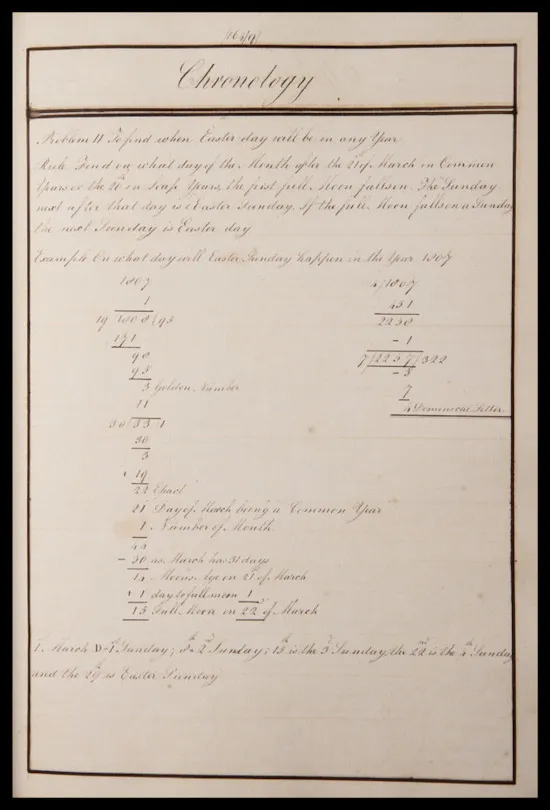 Chronology
Problem 11 To find when Easter day will be in any Year
Rule Find on what day of the Month after the 21st of March in Common
Years or the 20th in Leap Years, the first full Moon falls on. The Sunday
next after that day is Easter Sunday. If the full Moon falls on a Sunday
the next Sunday is Easter day
Example On what day will Easter Sunday happen in the Year 1807
1807
1
19 ) 1808 ( 95
171
98
95
3 Golden Number
11
30 ) 33 ( 1
30
3
19
22 Epact
21 Day of March being a Common Year
1 Number of Month
44
- 30 as March has 31 days
14 Moons Age on 21st of March
+ 1 day to full moon 1
15 Full Moon on 22nd of March
4 ) 1807
451
2258
- 1
7 ) 2257 ( 322
- 3
7
4 Dominical Letter
1. March D = 1st Sunday; 8 = 2nd Sunday; 15th is the 3rd Sunday the 22nd is the 4th Sunday
and the 29th is Easter Sunday